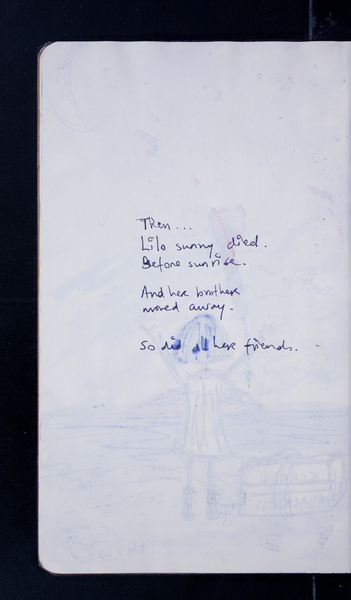 Then...
Lilo sunny died.
Before sunrise.
And her brother
moved away.
So did all her friends.